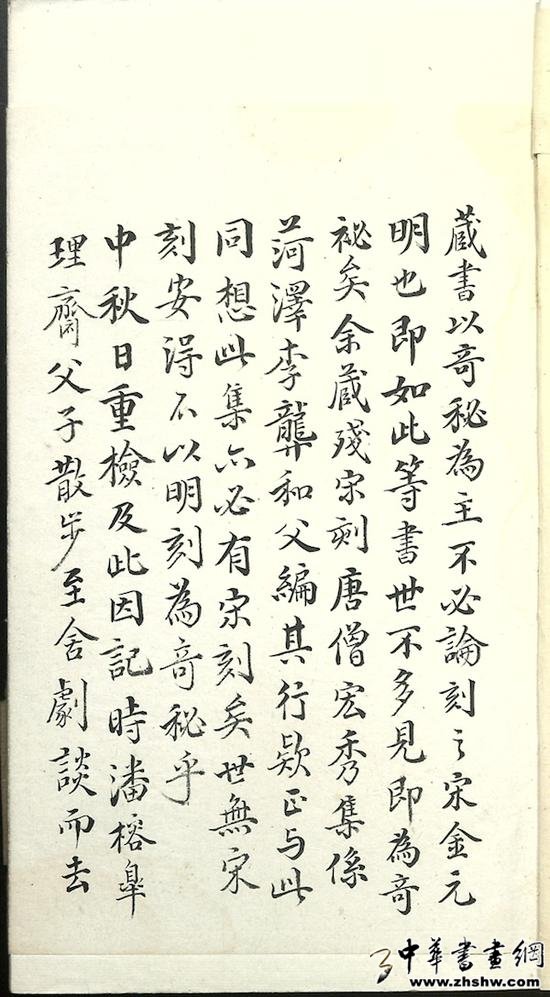 蔵書以竒秘為主不必論刻之宋金元
明也即如此等書世不多見即為竒
祕矣余蔵殘宋刻唐僧宏秀集係
菏澤李龏和父編其行欵正与此
同想此集亦必有宋刻矣世無宋
刻安得不以明刻為竒秘乎
中秋日重檢及此因記時潘榕皐
理齋父子散步至舍劇談而去
中华书画網
www.zhshw.com